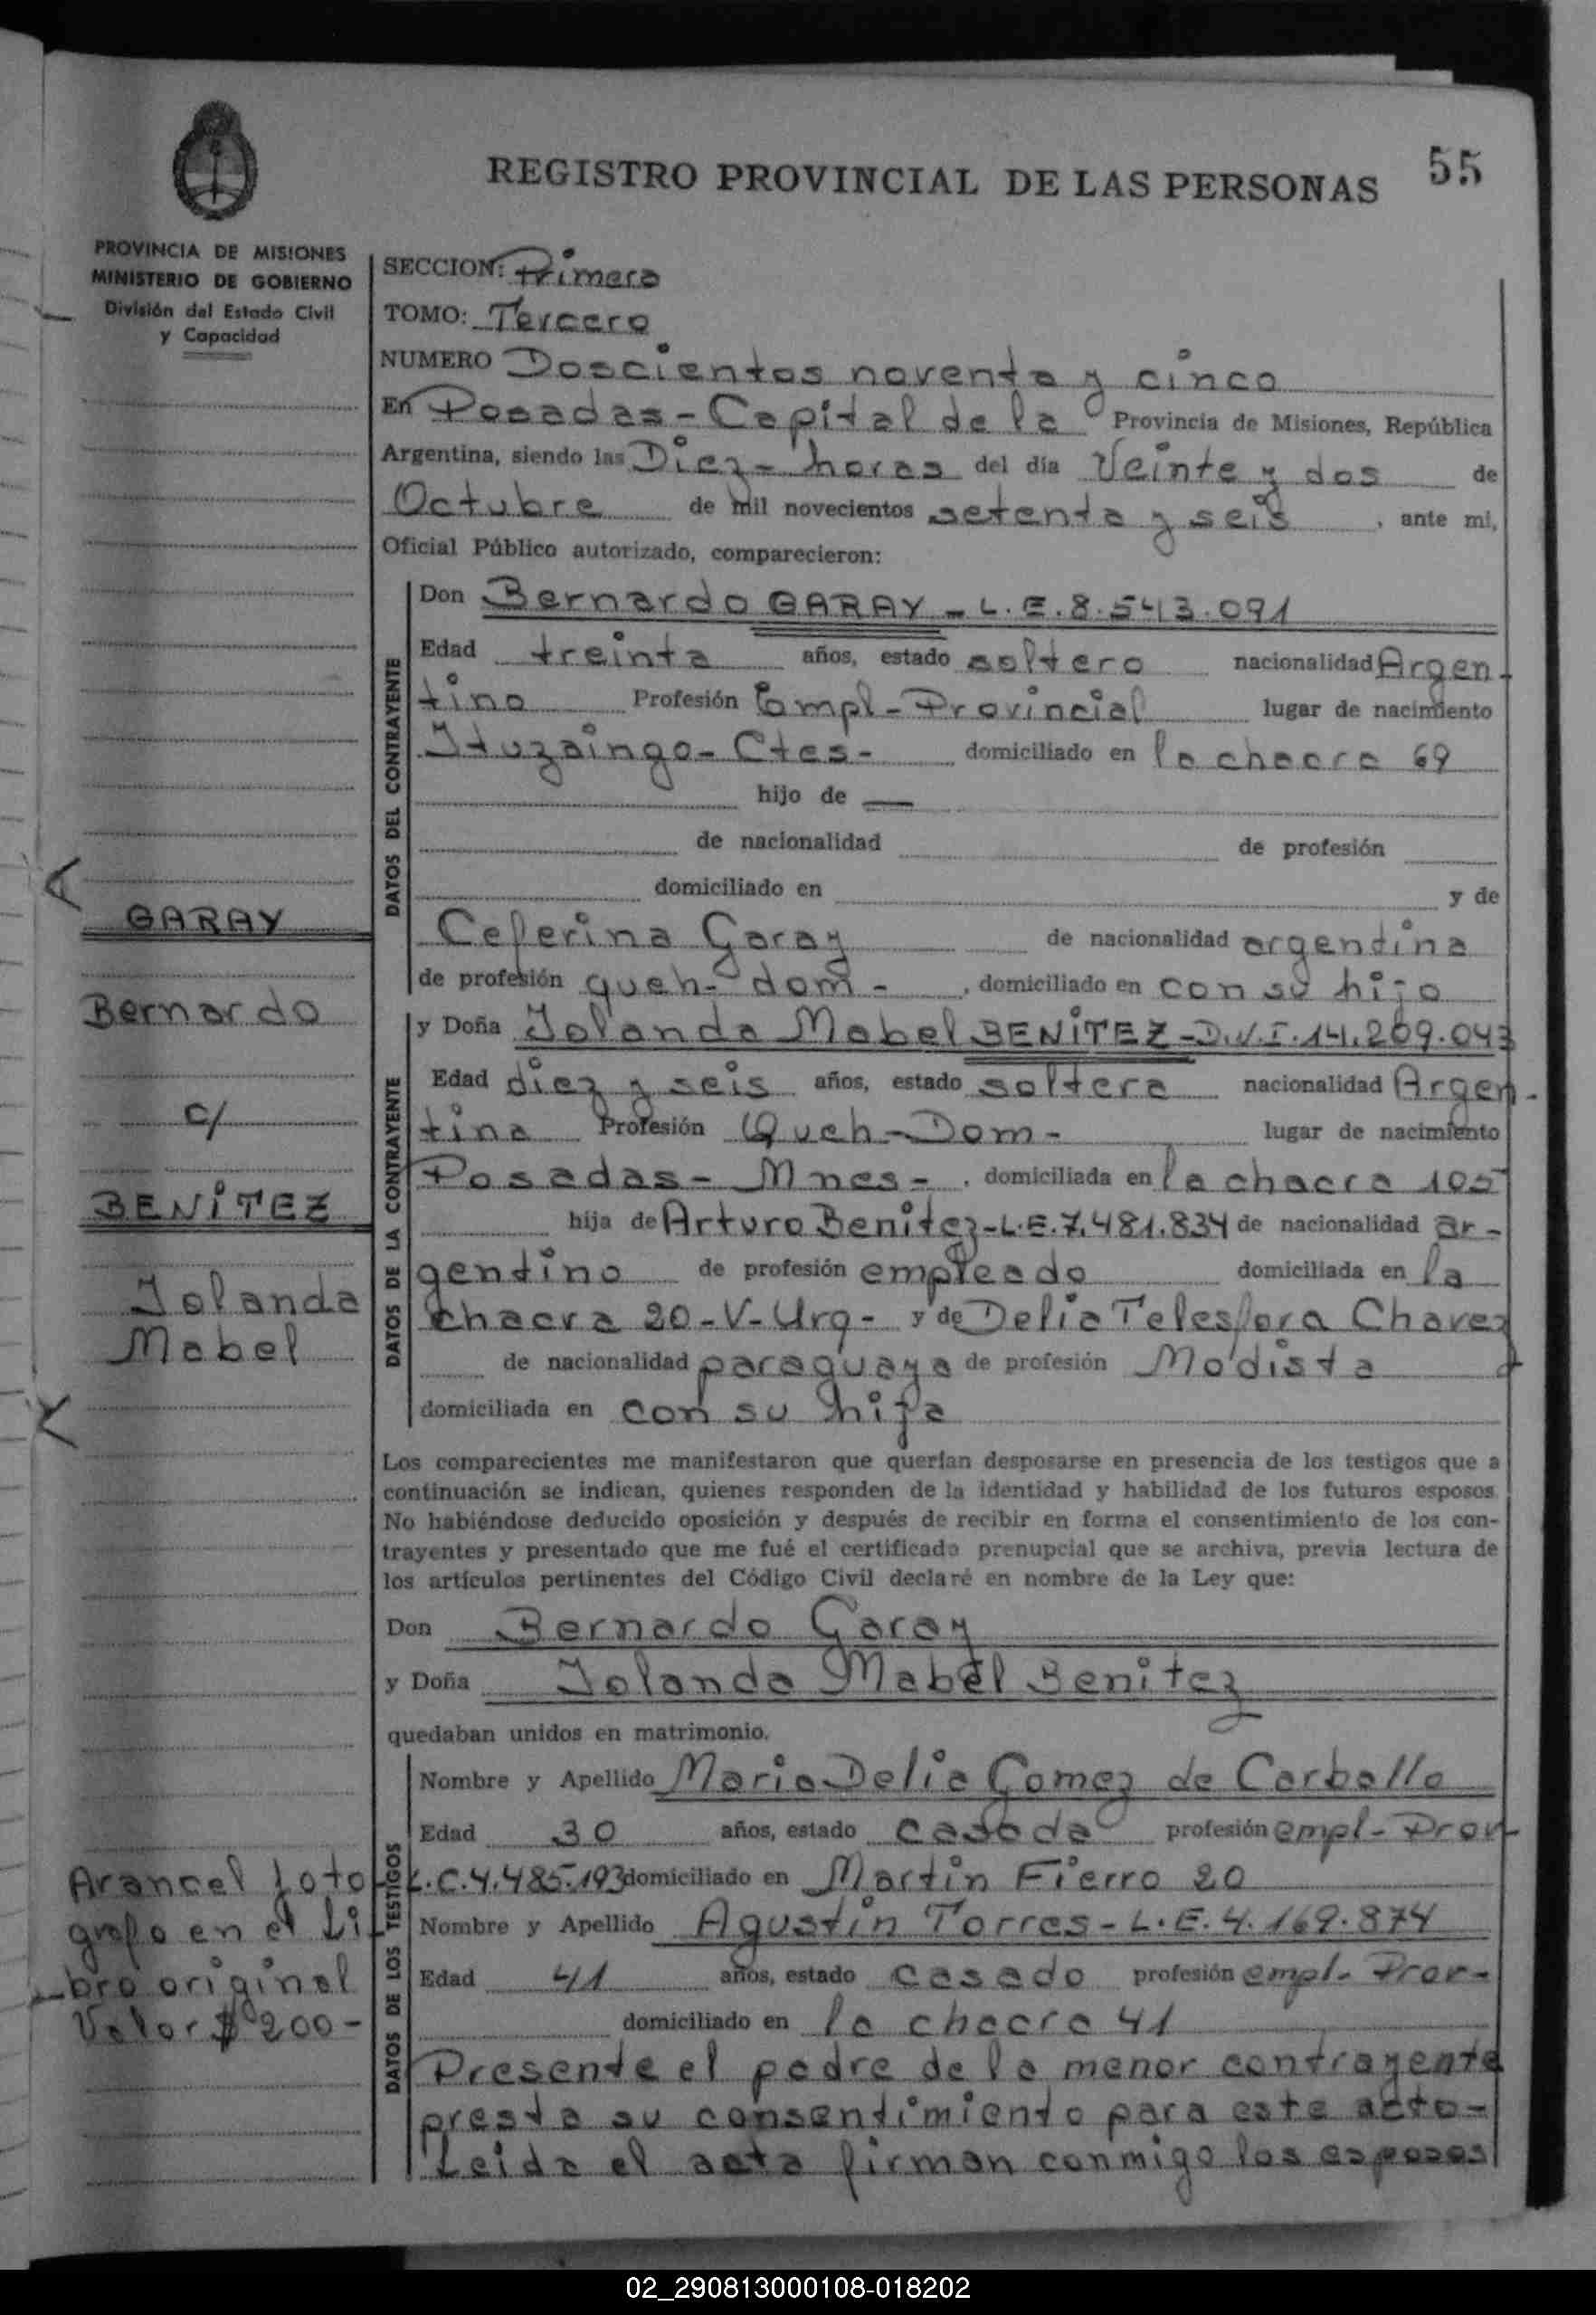 REGISTRO PROVINCIAL DE LAS PERSONAS 55
PROVINCIA DE MISIONES
MINISTERIO DE GOBIERNO
División del Estado Civil
y Capacidad
SECCION: Primera
TOMO: Tercero
NUMERO Doscientos noventa y cinco
En Posadas - Capital de la Provincia de Misiones, República
Argentina, siendo las Diez - horas del día Veinte y dos de
Octubre de mil novecientos setenta y seis, ante mi,
Oficial Público autorizado, comparecieron:
DATOS DEL CONTRAYENTE
Don Bernardo GARAY - L.E. 8.543.091
Edad treinta años, estado soltero nacionalidad Argen-
tino Profesión Empl - Provincial lugar de nacimiento
Ituzaingo - Ctes - domiciliado en la chacra 69
hijo de —
de nacionalidad de profesión
domiciliado en y de
Ceferina Garay de nacionalidad argentina
de profesión queh - dom -, domiciliado en con su hijo
DATOS DE LA CONTRAYENTE
y Doña Iolanda Mabel BENÍTEZ - D.N.I. 14.209.043
Edad diez y seis años, estado soltera nacionalidad Argen-
tina Profesión Queh - Dom - lugar de nacimiento
Posadas - Mnes -, domiciliada en la chacra 105
hija de Arturo Benítez - L.E. 7.481.834 de nacionalidad ar-
gentino de profesión empleado domiciliada en la
chacra 20 - V - Urq - y de Delia Telesfora Chavez
de nacionalidad paraguaya de profesión Modista
domiciliada en con su hija
Los comparecientes me manifestaron que querían desposarse en presencia de los testigos que a
continuación se indican, quienes responden de la identidad y habilidad de los futuros esposos.
No habiéndose deducido oposición y después de recibir en forma el consentimiento de los con-
trayentes y presentado que me fué el certificado prenupcial que se archiva, previa lectura de
los artículos pertinentes del Código Civil declaré en nombre de la Ley que:
Don Bernardo Garay
y Doña Iolanda Mabel Benitez
quedaban unidos en matrimonio.
DATOS DE LOS TESTIGOS
Nombre y Apellido Maria Delia Gomez de Carballo
Edad 30 años, estado casada profesión empl - Prov
L.C. 4.485.193 domiciliado en Martín Fierro 20
Nombre y Apellido Agustín Torres - L.E. 4.169.874
Edad 41 años, estado casado profesión empl - Prov -
domiciliado en la chacra 41
Presente el padre de la menor contrayente
presta su consentimiento para este acto -
Leida el acta firman conmigo los esposos
GARAY
Bernardo
c/
BENÍTEZ
Iolanda
Mabel
Arancel foto
grafo en el Li
bro original
Valor $ 200 -
02_290813000108-018202